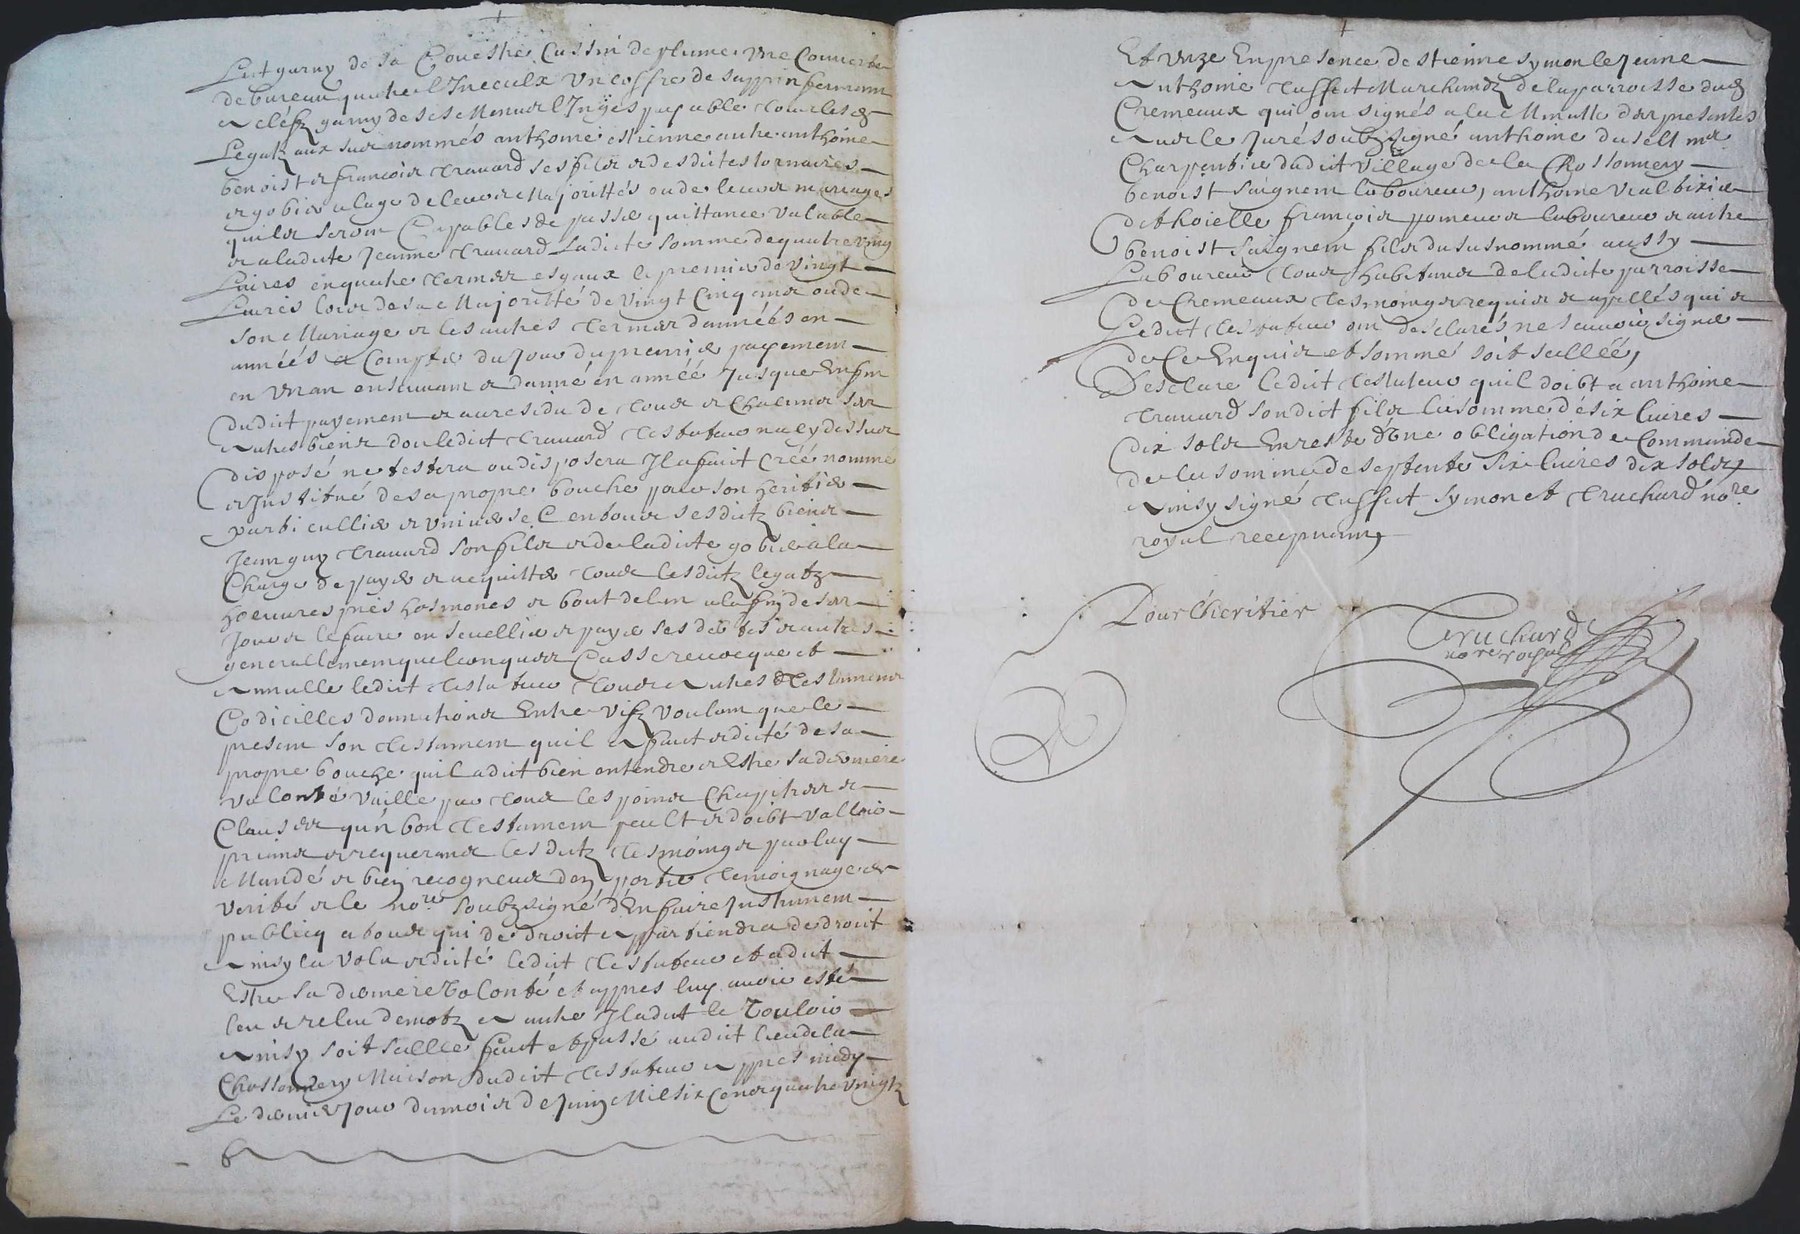 Lict garny de sa Couestre Cussin de plume une Couverte
de bureau quatre linceulx un coffre de sappin fermant
a cléfz garny de ses Menus linges payable tous lesds
Legatz aux sus nommés anthoine estienne autre anthoine
benoist et françois trauard ses fils et de sadicte
et gobier a lage de leurs Majorittés ou de leurs mariages
quils seront Capables de passer quittance valable
et a ladicte Jeanne trauard Ladicte somme de quatre vingt
Liures en quatre termes esgaux le premier de vingt
Liures lors de sa Majoritté de vingt Cinq ans ou de
son Mariage et les autres termes dannéés en
annéés a Compter du Jour du premier payement
en un an ensuivant et danné en année Jusques Enfin
dudict payement et au residu de tous et Chacuns ses
autres biens dont ledict trauard testateur na cy dessus
disposé ne testera ou disposera Il a faict créé nommé
et Institué de sa propre bouche pour son heritier
particullier et universel en tous sesdictz biens
Jean guy trauard son fils et de ladicte gobier a la
Charge de payer et acquitter tous lesdictz legatz
hoeuures pies hosmones et bout de lan a la fin de ses
Jours le faire ensevellir et payer ses debtes et autres
generallement quelconques Casse revocque et
annulle ledict testateur tous autres testamens
Codicilles donnations Entre vifz voulant que le
present son testament quil a faict et dicté de sa
propre bouche quil a dict bien entendre et Estre sa derniere
volonté vaille par tous les poincts Chapitres et
Clauses qun bon testament peult et doibt valloir
priant et requerant lesdictz tesmoings par luy
Mandé et bien recogneus den porter temoignage de
verité et le nore soubzsigné d'En faire Instrument
publicq a tous qui de droict appartiendra de droict
ainsy la volu et dicté ledict testateur et a dict
Estre sa derniere volonté et appres luy avoir esté
leu et releu de motz a autre Il a dict le vouloir
ainsy soit sellée faict et passé audict lieu de la
Chossonnery Maison dudict testateur appres midy
Le dernier Jour du mois de Juin Mil six Cens quatre vingtz
Et unze En presence de stienne symon le Jeune
anthoine tuffet Marchandz de la parroisse dud
Cremeaux qui ont signés a la Minutte des presentes
avec le Juré soubzsigné anthoine dusell me
Charpentier dudict village de la Chossonnery
benoist saignem laboureur, anthoine vial tixier
de thoielle françois pomeur laboureur et autre
benoist saignem fils du susnommé aussy
Laboureur tous habitans de ladicte parroisse
de Cremeaux tesmoings requis et appellés qui et
Ledict testateur ont desclarés ne scavoir signer
de Ce Enquis et sommé soit scellée,
Desclare Ledict testateur quil doibt a anthoine
trauard sondict fils la somme dé six liures
dix sols En reste d'une obligation de Commande
de la somme de septente six liures dix sols
ainsy signé tuffet symon et truchard nore
royal recepuant
Pour Lheritier
Truchard
nore royal